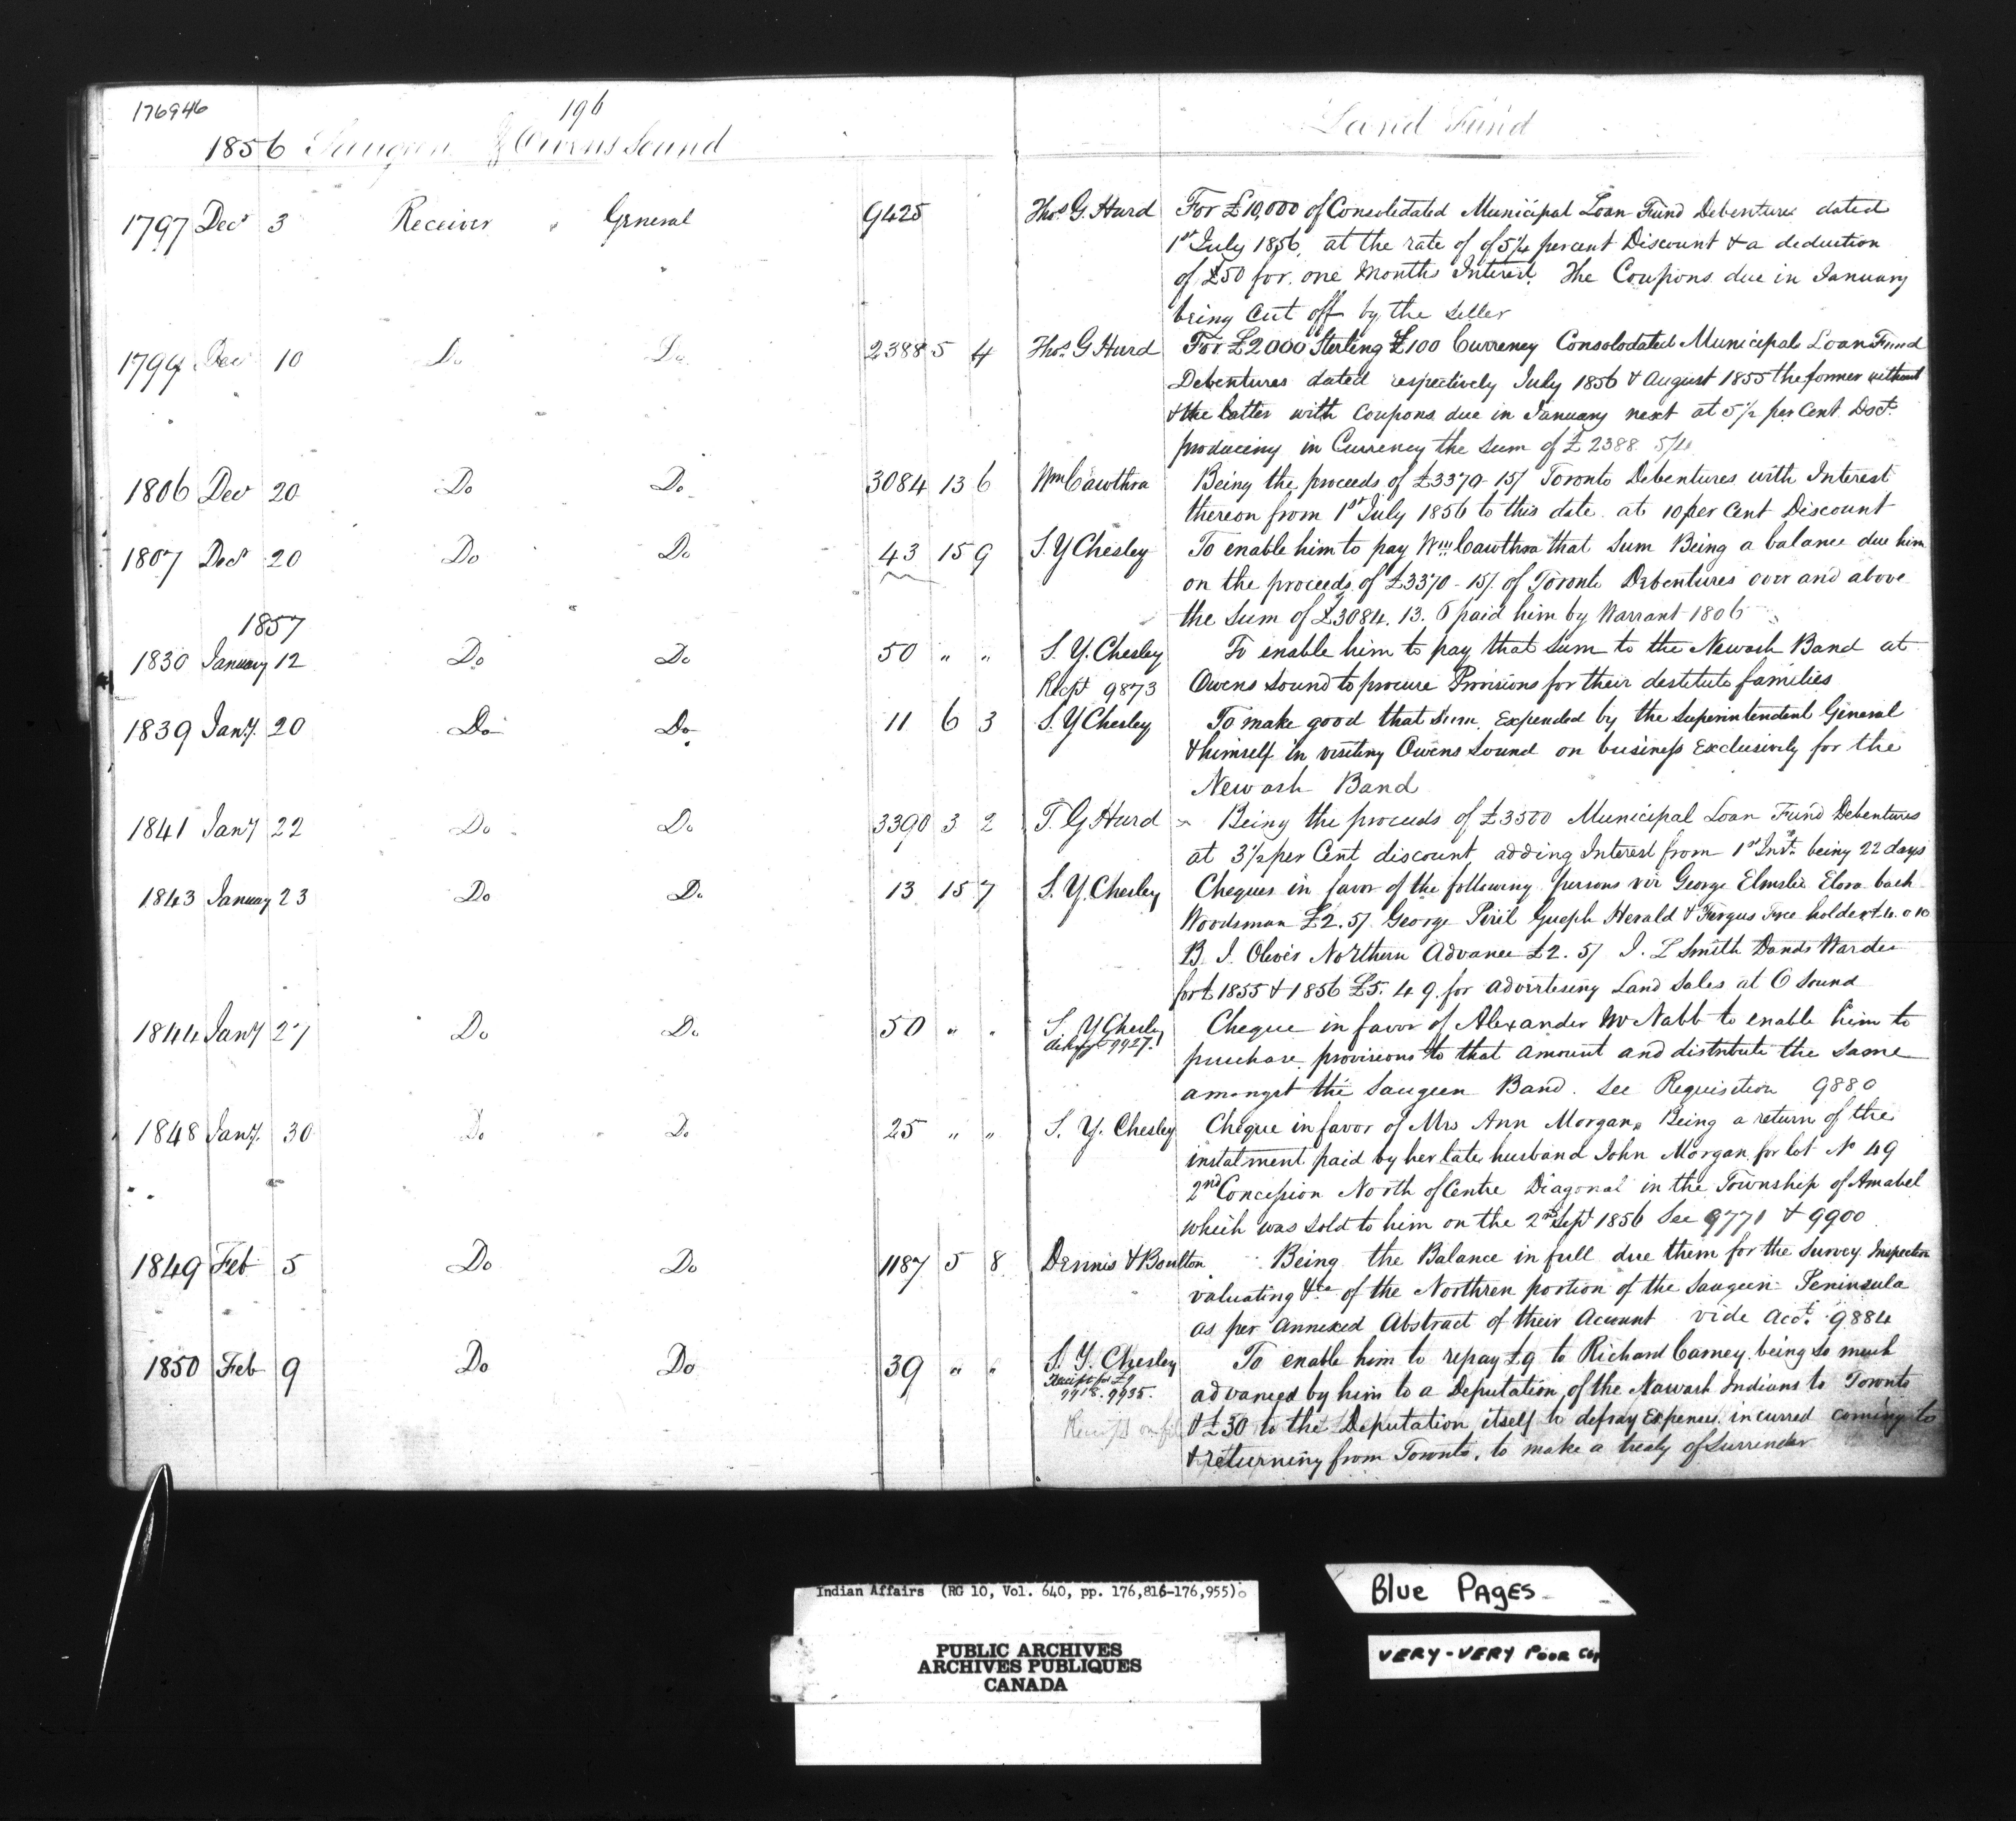 176946
196
1856 Saugeen & Owens Sound Land Fund
1797 Decr 3 Receiver General 9425 Thos G. Hurd For £10,000 of Consolidated Municipal Loan Fund Debentures dated
1st July 1856, at the rate of of 5¼ percent Discount & a deduction
of £50 for one Months Interest. The Coupons due in January
being cut off by the seller
1799 Dec 10 Do Do 2388 5 4 Thos. G Hurd For £2000 Sterling £100 Currency Consolodated Municipal Loan Fund
Debentures dated respectively July 1856 & August 1855 the former without
& the latter with Coupons due in January next at 5½ per Cent Dsct.
producing in Currency the sum of £2388 5/4
1806 Decr 20 Do Do 3084 13 6 Wm Cawthra Being the proceeds of £3370 - 15/ Toronto Debentures with Interest
thereon from 1st July 1856 to this date at 10 per Cent Discount
1807 Decr 20 Do Do 43 15 9 S. Y Chesley To enable him to pay Wm Cawthra that Sum Being a balance due him
on the proceeds of £3370 - 15/. of Toronto Debentures over and above
the Sum of £3084. 13. 6 paid him by Warrant 1806
1857
1830 January 12 Do Do 50 " " S. Y. Chesley To enable him to pay that Sum to the Newash Band at
Recpt 9873 Owens Sound to procure Provisions for their destitute families
1839 Jany. 20 Do Do 11 6 3 S. Y Chesley To make good that Sum Expended by the Superintendent General
& himself in visiting Owens Sound on business Exclusively for the
Newash Band
1841 Jany 22 Do Do 3390 3 2 T. G Hurd Being the proceeds of £3500 Municipal Loan Fund Debentures
at 3½ per Cent discount adding Interest from 1st Inst. being 22 days
1843 January 23 Do Do 13 15 7 S. Y. Chesley Cheques in favor of the following persons viz George Elmslie Elora back
Woodsman £2. 5/ George Piril Gueph Herald & Fergus Free holder £4. 0 10
B. J. Oliver Northern Advance £2. 5/ J. L Smith Dands Warder
for 1855 & 1856 £5. 4 9. for advertesing Land Sales at O Sound
1844 Jany 27 Do Do 50 " " S. Y Chesley Cheque in favor of Alexander McNabb to enable him to
9927. purchase provisions to that amount and distribute the same
amongst the Saugeen Band. See Requisition 9880
1848 Jany. 30 Do Do 25 " " S. Y. Chesley Cheque in favor of Mrs Ann Morgan, Being a return of the
instalment paid by her late husband John Morgan for lot No 49
2nd Concession North of Centre Diagonal in the Township of Amabel
which was sold to him on the 2nd Sept 1856 See 9771 & 9900
1849 Feb 5 Do Do 1187 5 8 Dennis & Boulton Being the Balance in full due them for the Survey Inspection
valuating &ca of the Northren portion of the Saugeen Peninsula
as per annexed Abstract of their Account vide acct. 9884
1850 Feb 9 Do Do 39 " " S. Y. Chesley To enable him to repay £9 to Richard Carney being so much
Receipt for £9
9918. 9935. advanced by him to a Deputation of the Nawash Indians to Toronto
Receipt on file & £30 to the Deputation itself to defray Expences incurred coming to
& returning from Toronto, to make a treaty of Surrender
Indian Affairs (RG 10, Vol. 640, pp. 176,816-176,955)
PUBLIC ARCHIVES
ARCHIVES PUBLIQUES
CANADA
Blue PAGES
VERY-VERY POOR COP